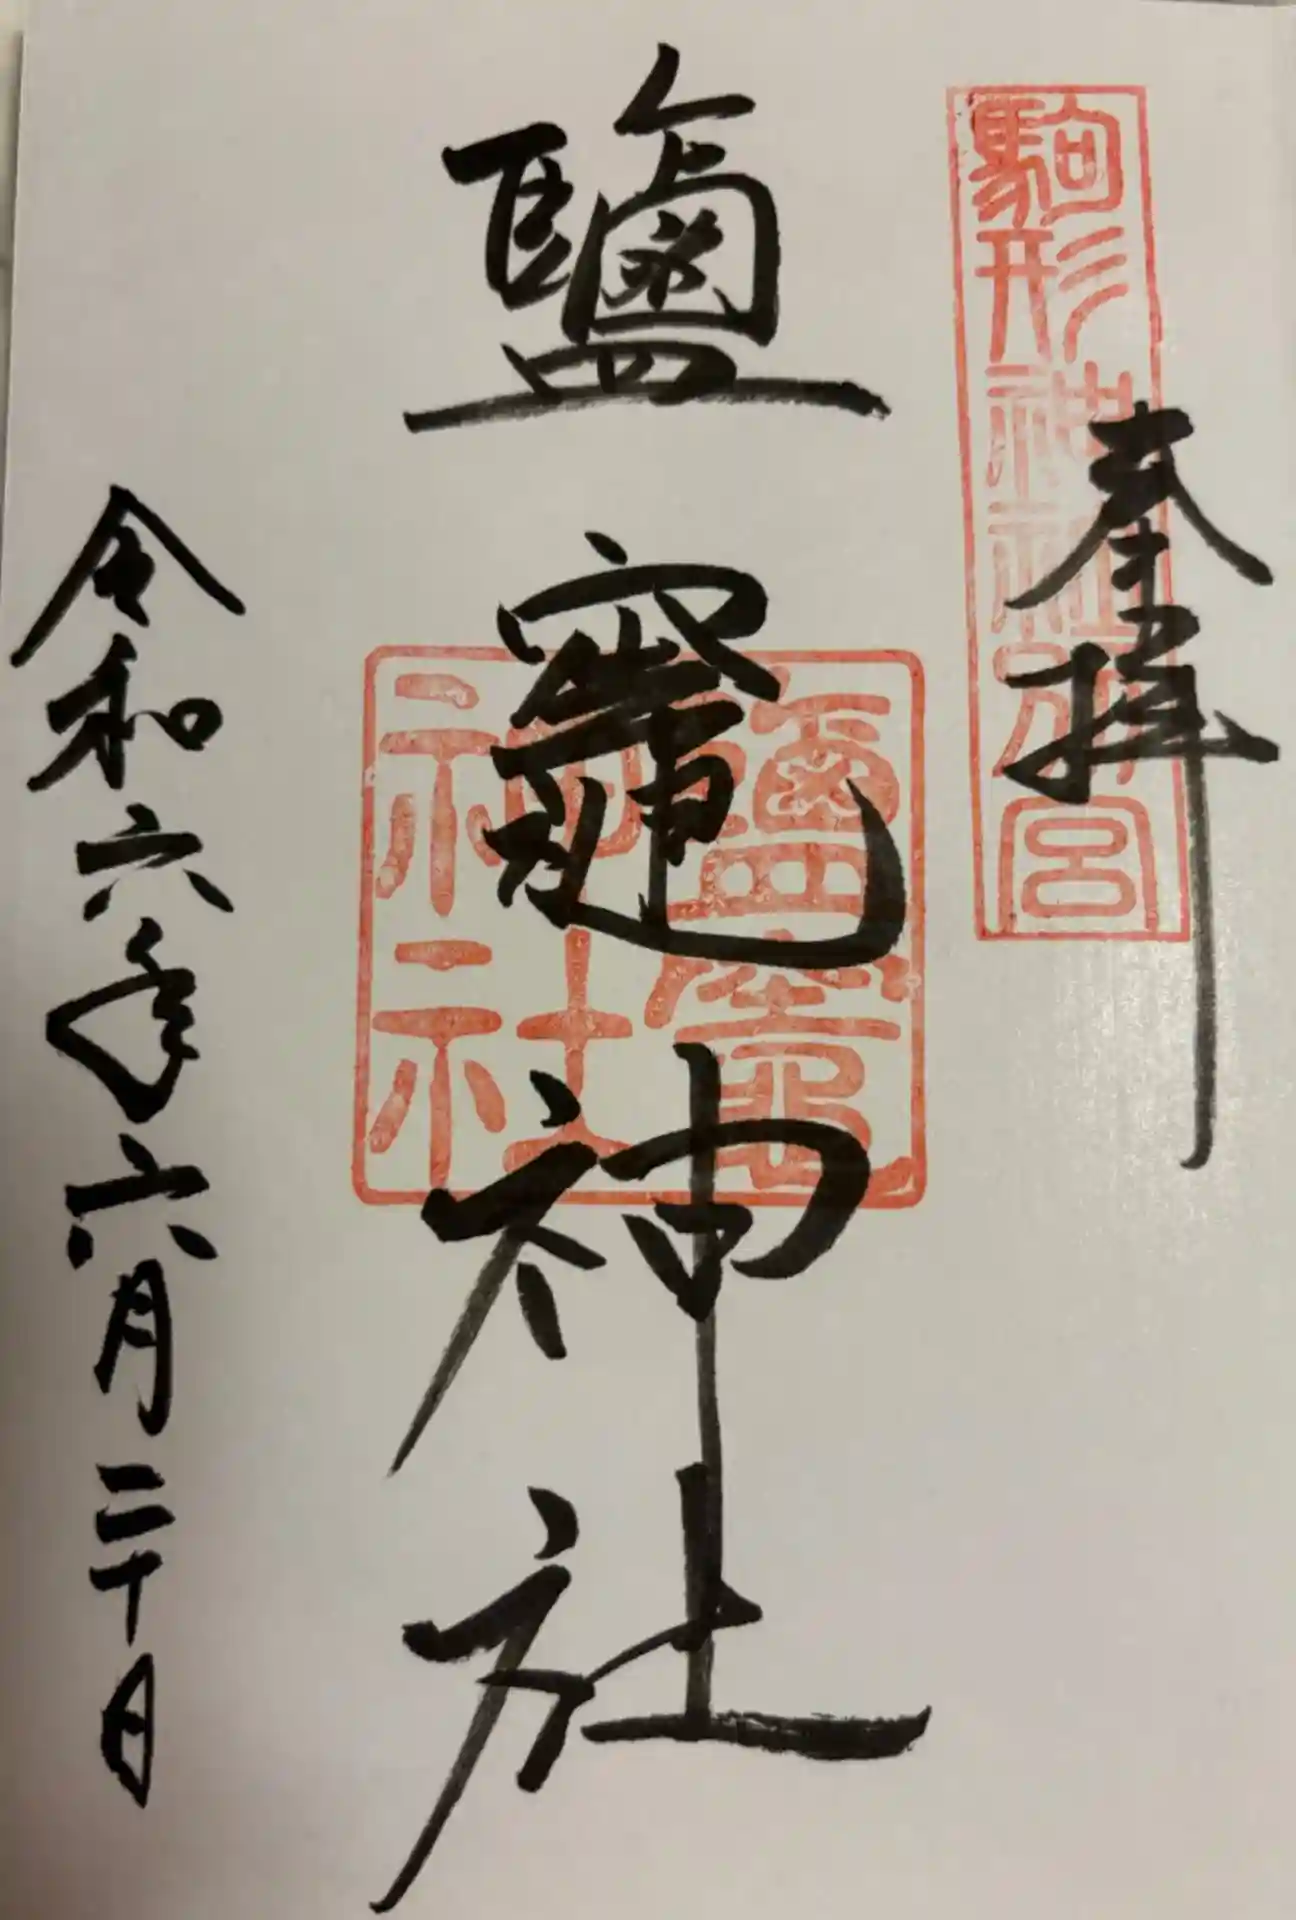 奉拝
駒形神社別宮
鹽竈神社
鹽竈
神社
令和六年六月二十日